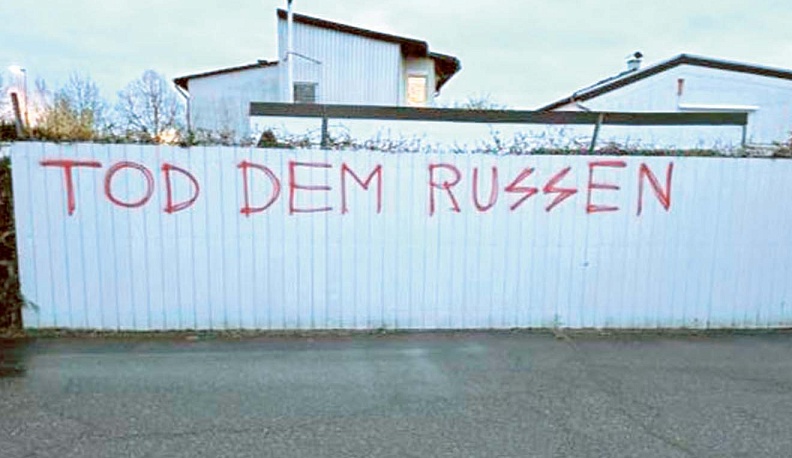 TOD DEM RUSSEN